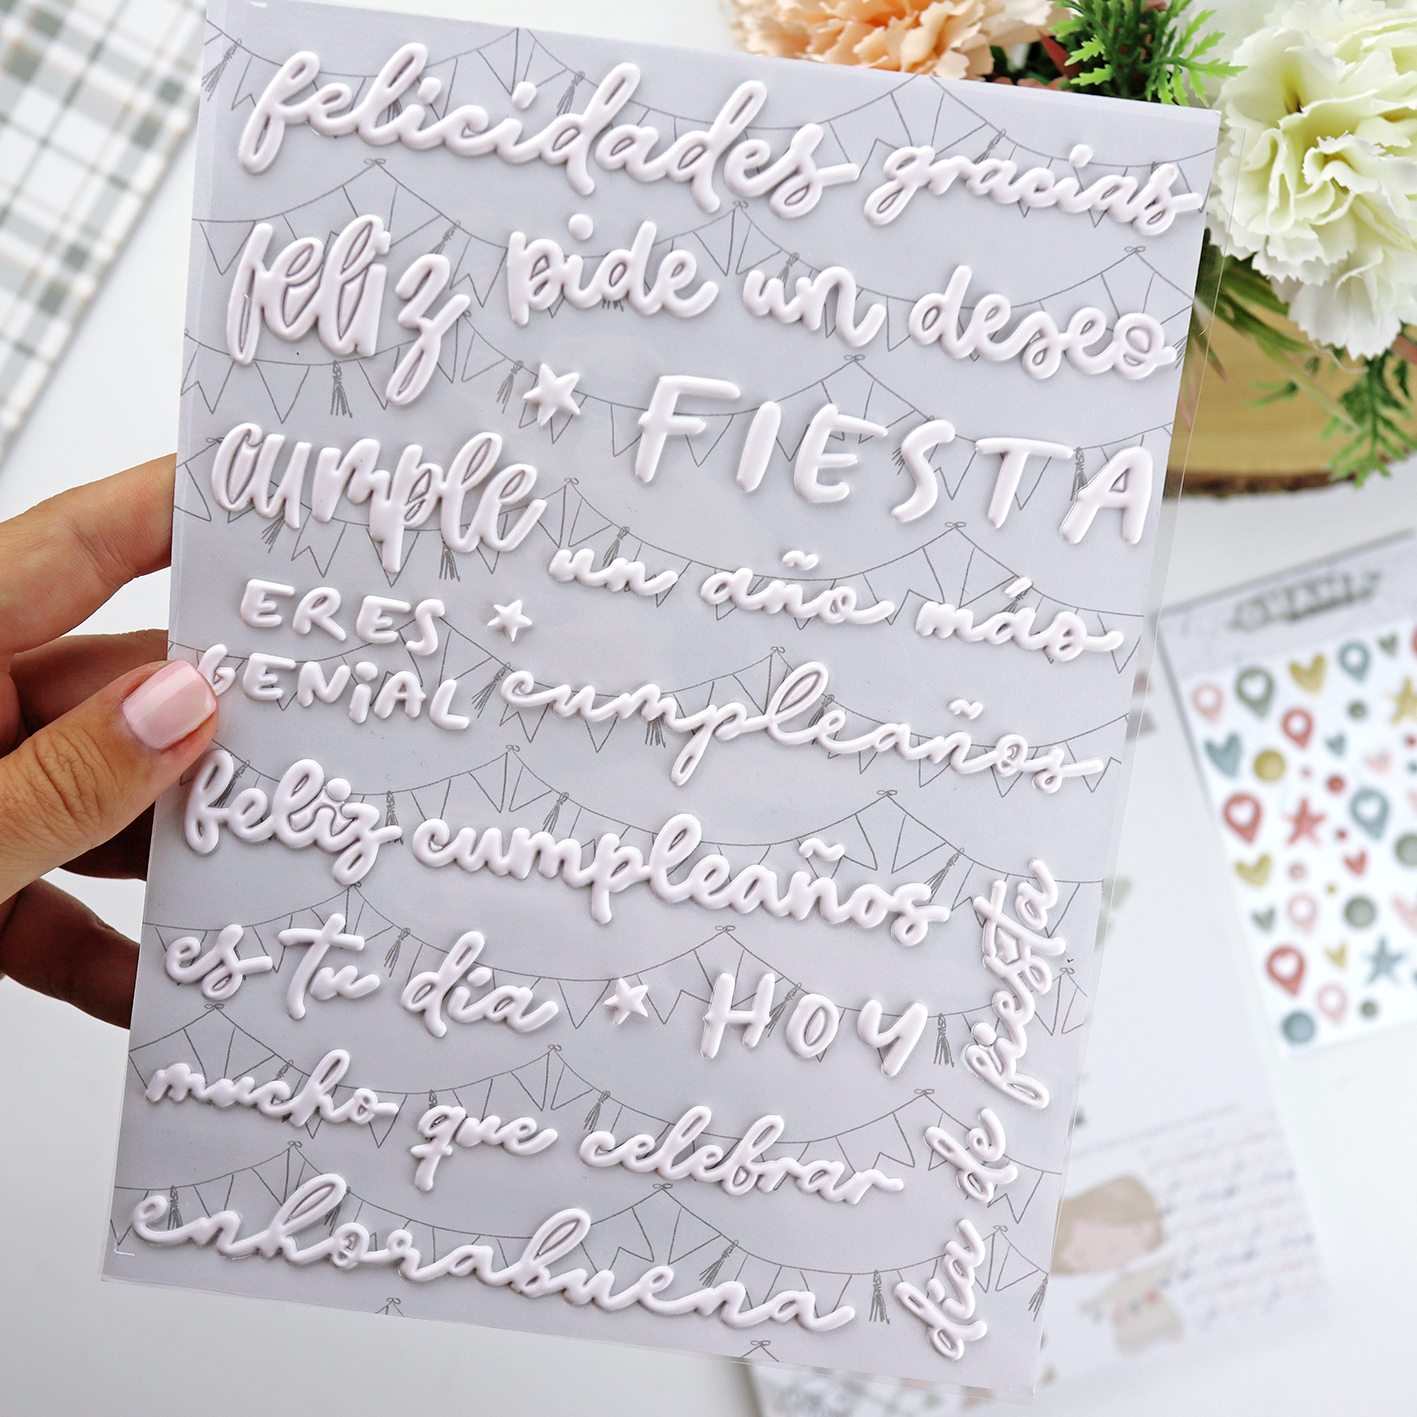 felicidades gracias
feliz pide un deseo
FIESTA
cumple
un año más
ERES
GENiAL
cumpleaños
feliz cumpleaños
es tu día
HOY
mucho que celebrar
enhorabuena
día de fiesta